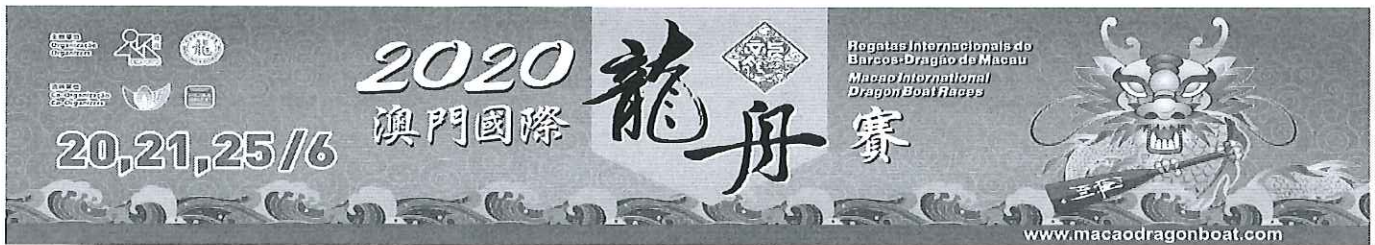 主辦單位
Organização
Organizers
龍
Co-Organização
Co-Organizers
20,21,25/6
2020
澳門國際
龍舟
賽
Regatas Internacionais de
Barcos-Dragão de Macau
Macao International
Dragon Boat Races
www.macaodragonboat.com